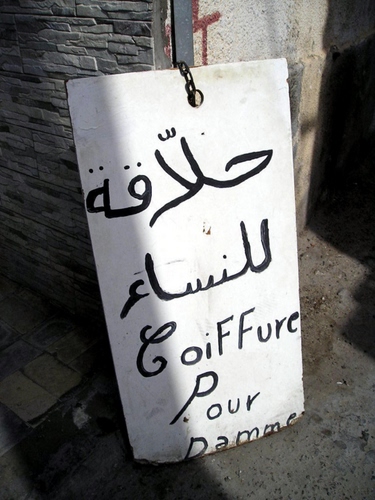 حلاّقة
للنساء
Coiffure
Pour
Damme